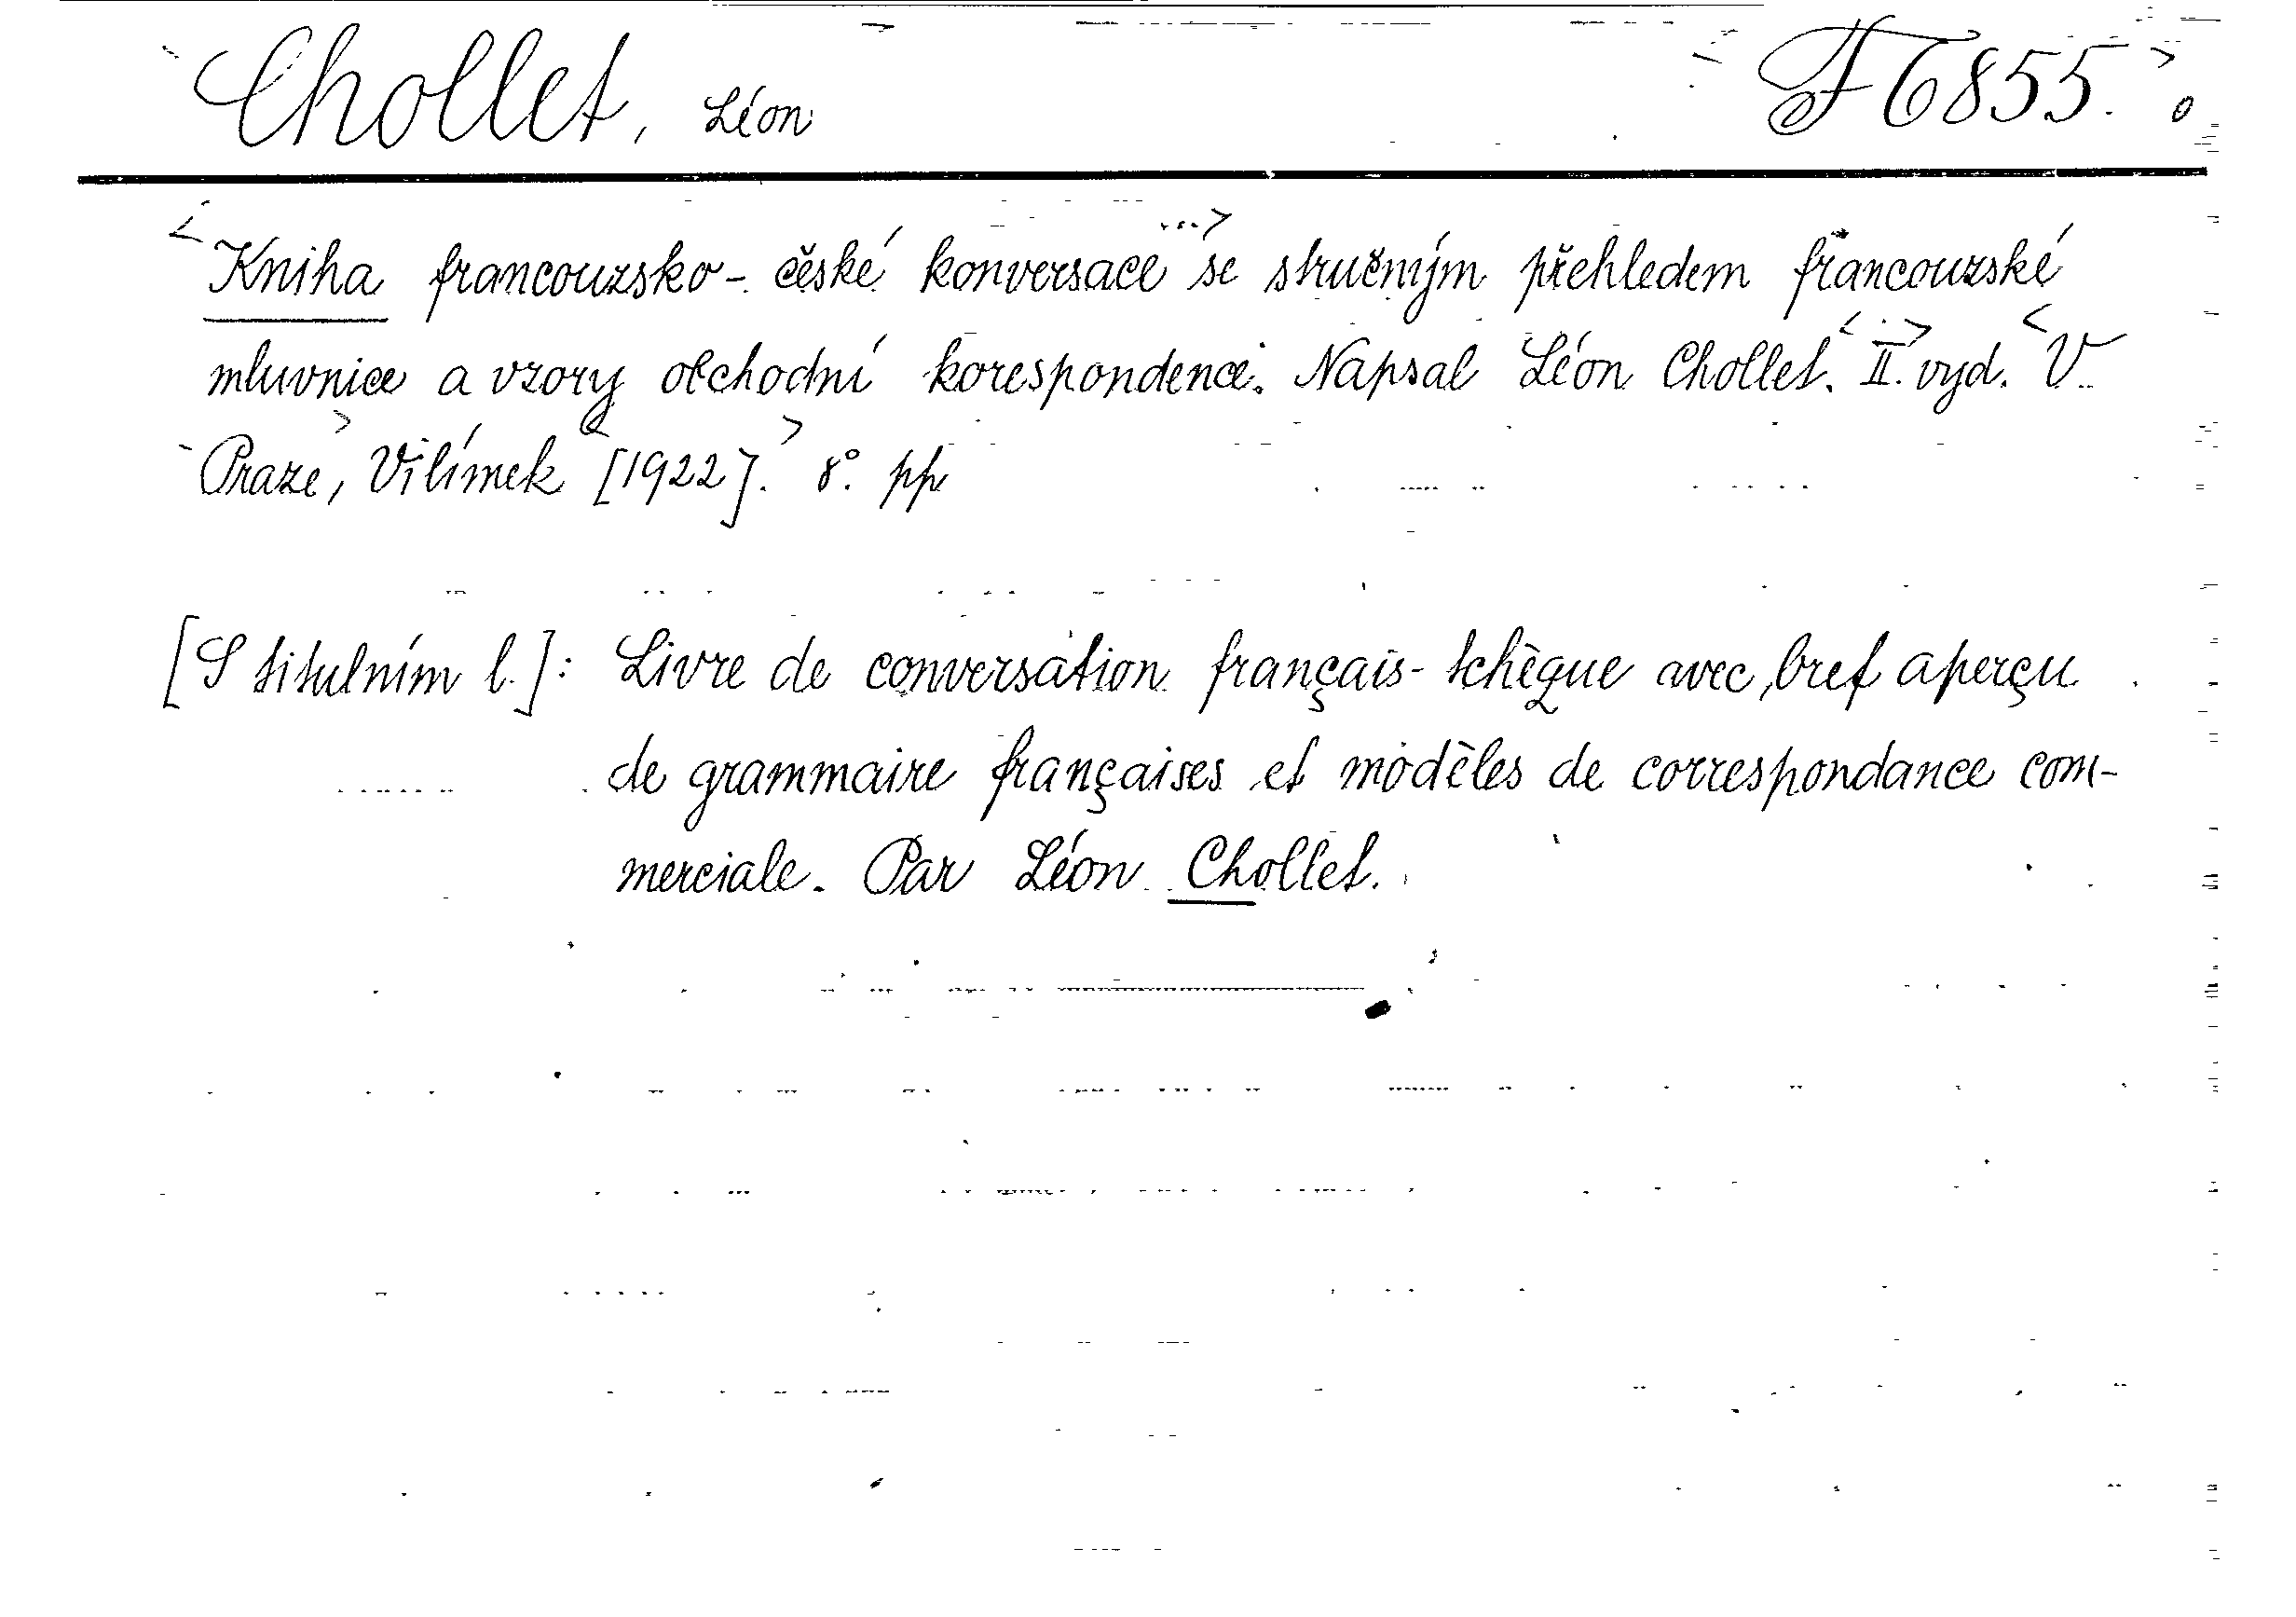 Chollet, Léon F 6855.
Kniha francouzsko-české konversace se stručným přehledem francouzské
mluvnice a vzory obchodní korespondence. Napsal Léon Chollet. II. vyd. V
Praze, Vilímek [1922]. 8°. pp
[S titulním l.]: Livre de conversation français-tchèque avec bref aperçu
de grammaire françaises et modèles de correspondance com-
merciale. Par Léon Chollet.